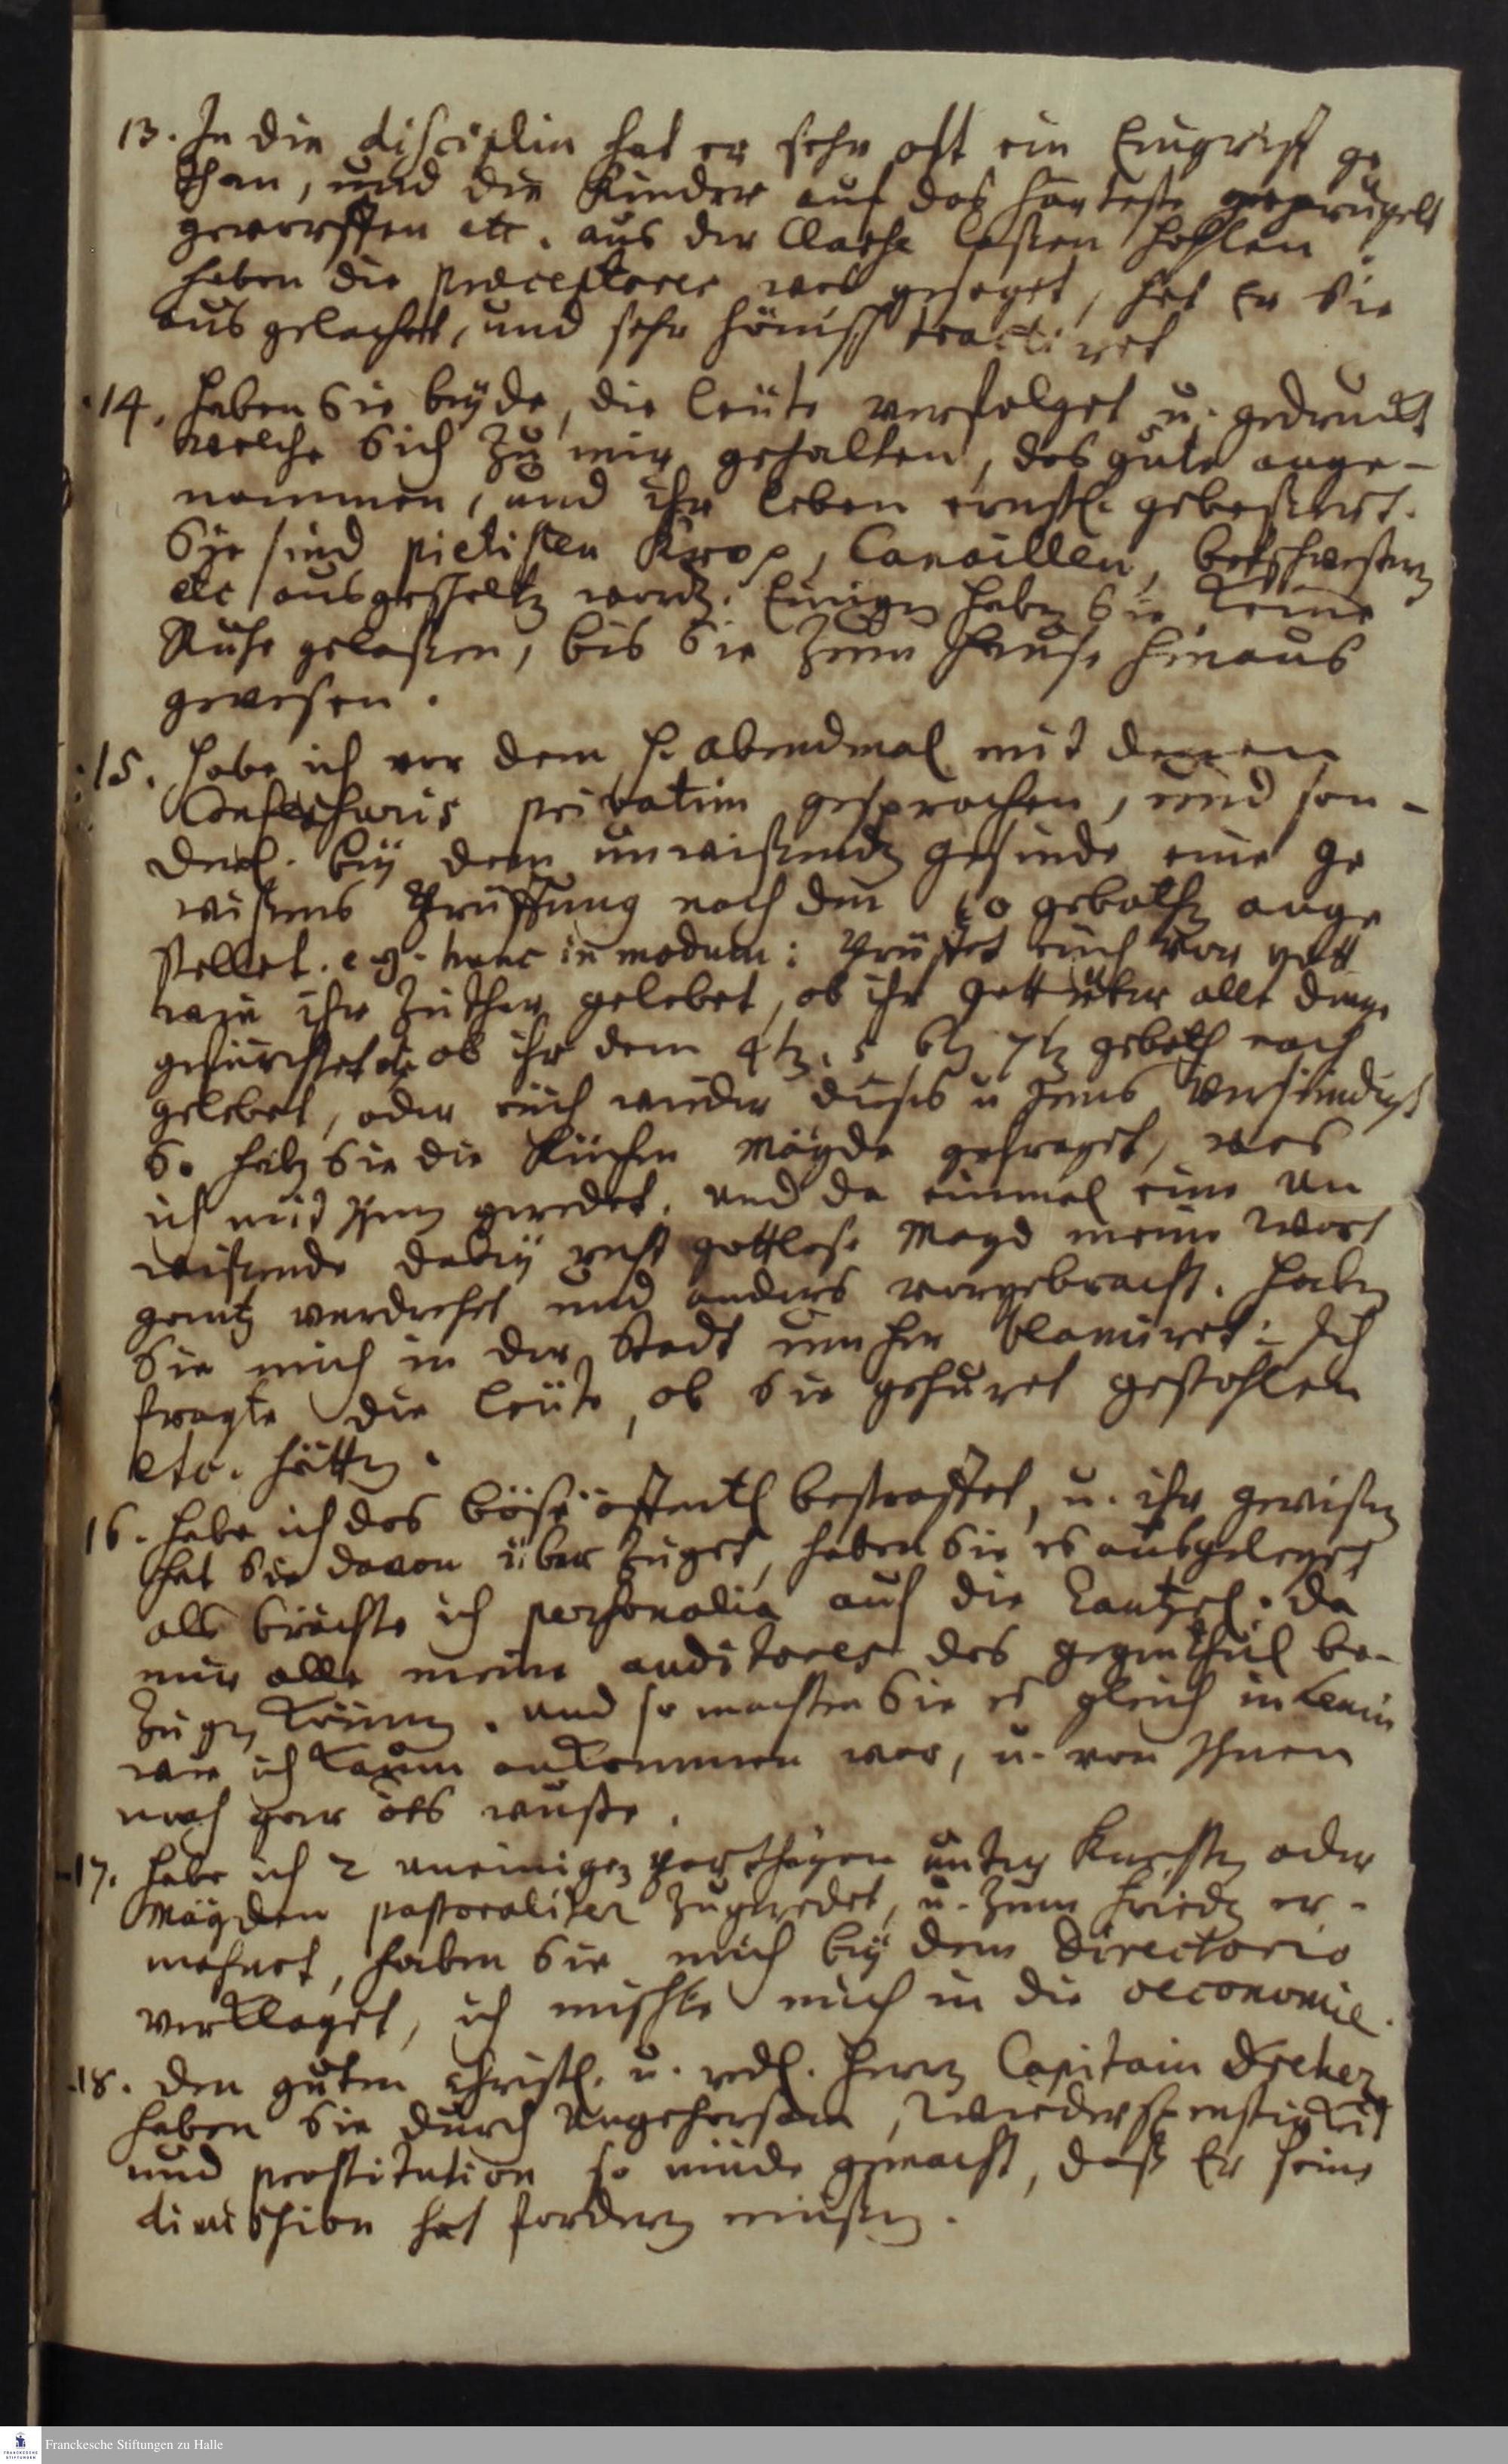 13. In die disciplin hat er sehr oft ein Eingriff ge
than, und die Kinder auf das härteste geprügelt
geworffen etc. aus der Classe laßen hohlen
haben die præceptores was gesaget, hat Er Sie
ausgelachet, und sehr hönisch tractiret
14. haben Sie beyde, die Leüte verfolget u. gedruckt
welche Sich zu mir gehalten, das gute ange-
nommen, und ihr Leben ernstl. gebeßert.
Sie sind pietisten Krop, Canaillen, betschwestern
etc ausgescholten worden. Einigen haben Sie keine
Ruhe gelaßen, bis Sie zum Hause hinaus
gewesen.
15. habe ich vor dem h. abendmal mit denen
privatim gesprochen, und son-
derl. bey dem unwißenden gesinde eine ge
wißens Prüffung nach den 10 gebothen ange
stellet. e.g. hunc in modum: Prüffet eüch vor gott
wie ihr zuther gelebet, ob ihr gott über alle dinge
gefürchtet etc ob ihr dem 4ten. 5 6ten 7ten geboth nach
gelebet, oder eüch wieder dieses u jenes versündigt
So haben Sie die Küchen Mägde gefraget, was
ich mit Ihnen geredet. und da einmal eine un
wißende dabey recht gottlose Magd meine Wort
gantz verdrehet und anders vorgebracht. haben
Sie mich in der Stadt umher blamiret: Ich
fragte die Leüte, ob Sie gehuret gestohlen
etc. hätten.
16. habe ich das böse öffentl bestraffet, u. ihr gewißen
hat Sie davon überzuget, haben Sie es ausgeleget
als brächte ich personalia auf die Cantzel. da
mir alle meine auditores das gegentheil be-
zugen können. und so machten Sie es gleich
wie ich kaum ankommen war, u. von Ihnen
noch gar wuste.
17. habe ich 2 uneinigen parthayen unter Knechten oder
Mägden pastoraliter zugeredet, u. zum frieden er-
mahnet, haben Sie mich bey dem Directorio
verklaget, ich mischte mich in die oeconomie.
18. den guten christl. u. redl. Herrn Capitain Dreher
haben Sie durch Ungehorsam, Wiederspenstigkeit
und prostitution so müde gemacht, daß Er seine
dimishion hat fordern müßen.
Franckesche Stiftungen zu Halle